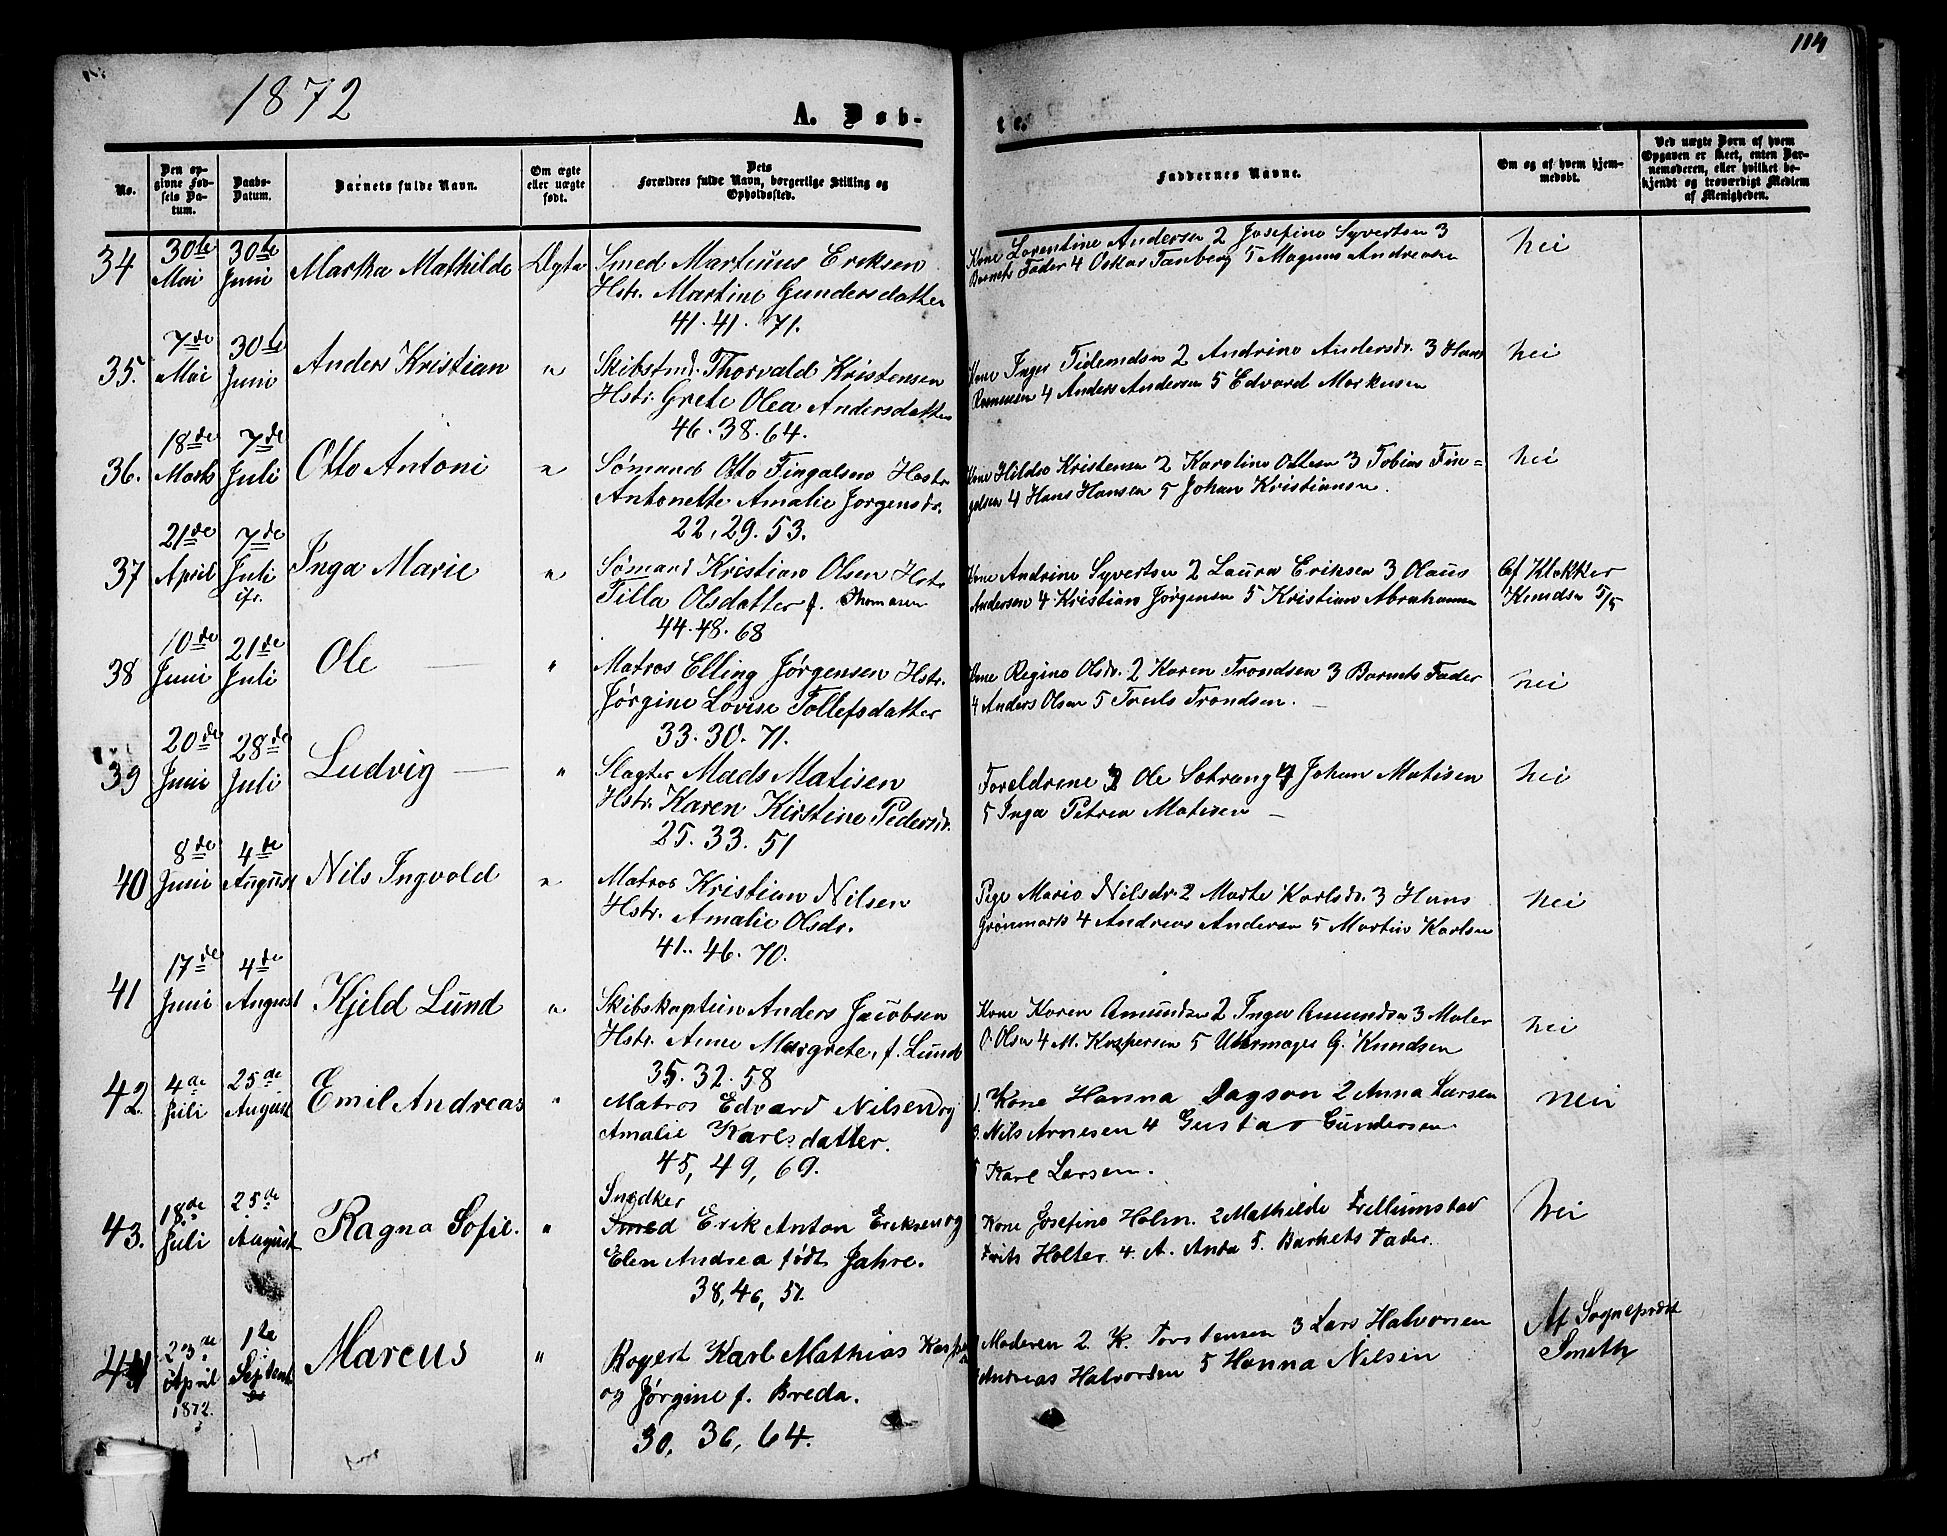 114
1872
A. Døb-
te.
No.
Den opgivne Fødsels Datum.
Daabs-Datum.
Barnets fulde Navn.
Om ægte eller uægte født.
Dets Forældres fulde Navn, borgerlige Stilling og Opholdssted.
Faddernes Navne.
Om og af hvem hjemmedøbt.
Ved uægte Born af hvem Opgaven er skeet, enten Barnemoderen, eller hvilket bekjendt og troværdigt Medlem af Menigheden.
34 30te Mai 30te Juni Marka Mathilde Ægte
Smed Martinus Eriksen
Hstr. Martine Gundersdatter
41. 41. 71.
Kone Lorentine Andersen 2 Josefine Syvertsen 3
Barnets Fader 4 Oskar Tanberg 5 Magnus Andreasen
Nei
35. 7de Mai 30te Juni Anders Kristian "
Skibstmd. Thorvald Kristensen
Hstr. Grete Olea Andersdatter
46. 38. 64.
Kone Inger Tidemdsen 2 Andrine Andersdr. 3 Hans
Rasmusen 4 Anders Andersen 5 Edvard Markusen
Nei
36. 18de Marts 7de Juli Otto Antoni "
Sømand Otto Fingalsen Hstr.
Antonette Amalie Jørgensdr.
22, 29. 53.
Kone Hilda Kristensen 2 Karoline Ottesen 3 Tobias Fin=
galsen 4 Hans Hansen 5 Johan Kristiansen.
Nei
37 21de April 7de Juli ifr. Inga Marie "
Sømand Kristian Olsen Hstr
Tilla Olsdatter f. Thomasen
44. 48. 68
Kone Andrine Syvertsen 2 Laura Eriksen 3 Olaus
Andersen 4 Kristian Jørgensen 5 Kristian Abrahamsen
Af Klokker
Knudsen 5/5
38 10de Juni 21de Juli Ole — "
Matros Elling Jørgensen Hstr.
Jørgine Lovise Tollefsdatter
33. 30. 71.
Kone Regine Olsdr. 2 Karen Trondsen 3 Barnets Fader
4 Anders Olsen 5 Truls Trondsen. —
Nei
39 20de Juni 28de Juli Ludvig — "
Slagter Mads Matisen
Hstr. Karen Kirstine Pedersdr.
25. 33. 51
Foreldrene 3 Ole Sætrang 4 Johan Matisen
5 Inga Petrea Matisen —
Nei
40 8de Juni 4de August Nils Ingvold "
Matros Kristian Nilsen
Hstr. Amalie Olsdr.
41. 46. 70.
Pige Marie Nilsdr. 2 Marte Karlsdr. 3 Hans
Grønmark 4 Andreas Andersen 5 Martin Karlsen
Nei
41 17de Juni 4de August Kjeld Lund "
Skibskaptein Anders Jacobsen
Hstr. Anne Margrete, f. Lund
35. 32. 58
Kone Karen Amundsen 2 Inga Amundsen 3 Maler
O. Olsen 4 M. Kaspersen 5 Uhrmager G. Knudsen
Nei
42. 4de Juli 25de August Emil Andreas "
Matros Edvard Nilsen og
Amalie Karlsdatter.
45, 49, 69.
1. Kone Hanna Dagson 2 Anna Larsen
3. Nils Arnesen 4 Gustav Gundersen
5 Karl Larsen.
Nei
43. 18de Juli 25de August Ragna Sofie. "
Snedker
Smed Erik Anton Eriksen og
Elen Andrea født Jahre.
38, 46, 51.
1 Kone Josefine Holm. 2 Mathilde Trellumstad
Frits Holter. 4. A. Anda 5. Barnets Fader.
Nei
44 23de April 1872. 1te Septem Marcus "
Rogert Karl Mathias Kasp
og Jørgine f. Breda.
30, 36, 64.
1 Moderen 2. K. Torstensen 3 Lars Halvorsen
4 Andreas Halvorsen 5 Hanna Nilsen
Af Sogneprest
Smith